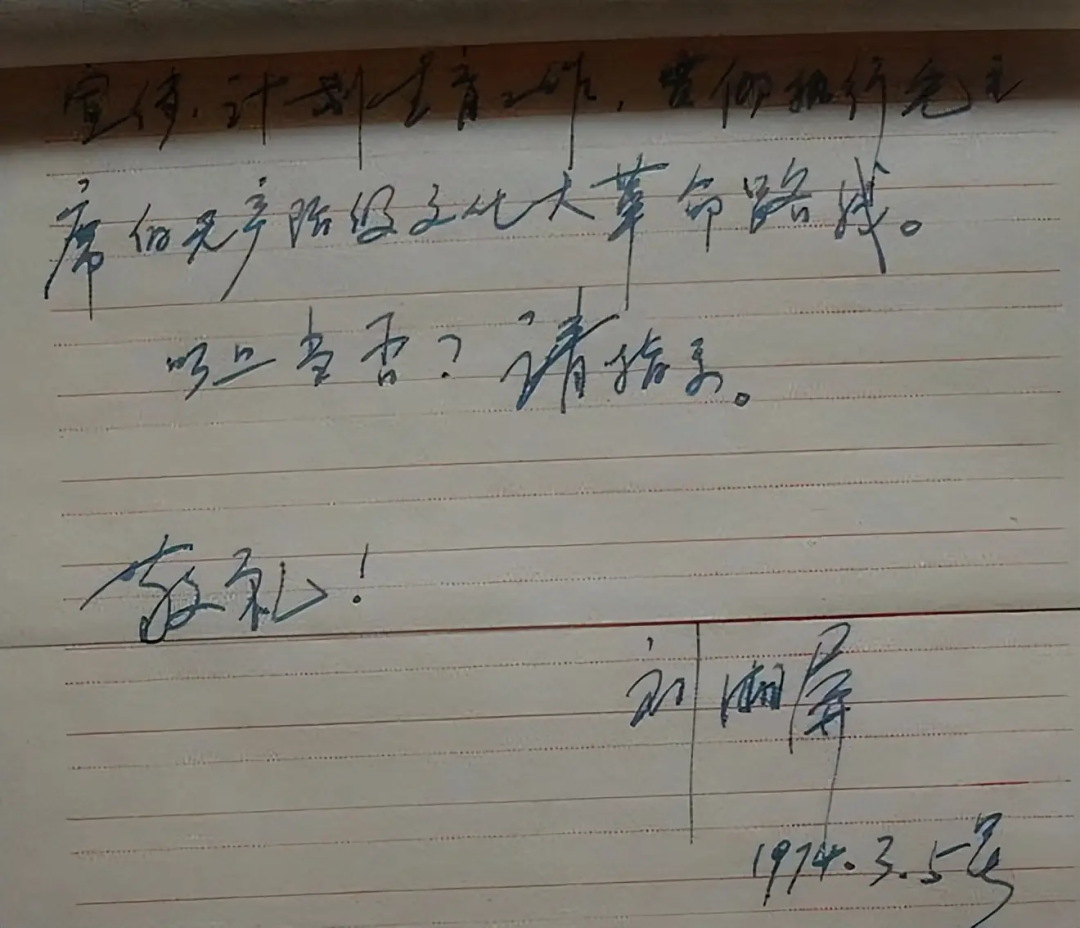 宣传、计划生育工作，贯彻执行毛主
席的无产阶级文化大革命路线。
以上当否？请指示。
敬礼！
刘湘屏
1974.3.5号